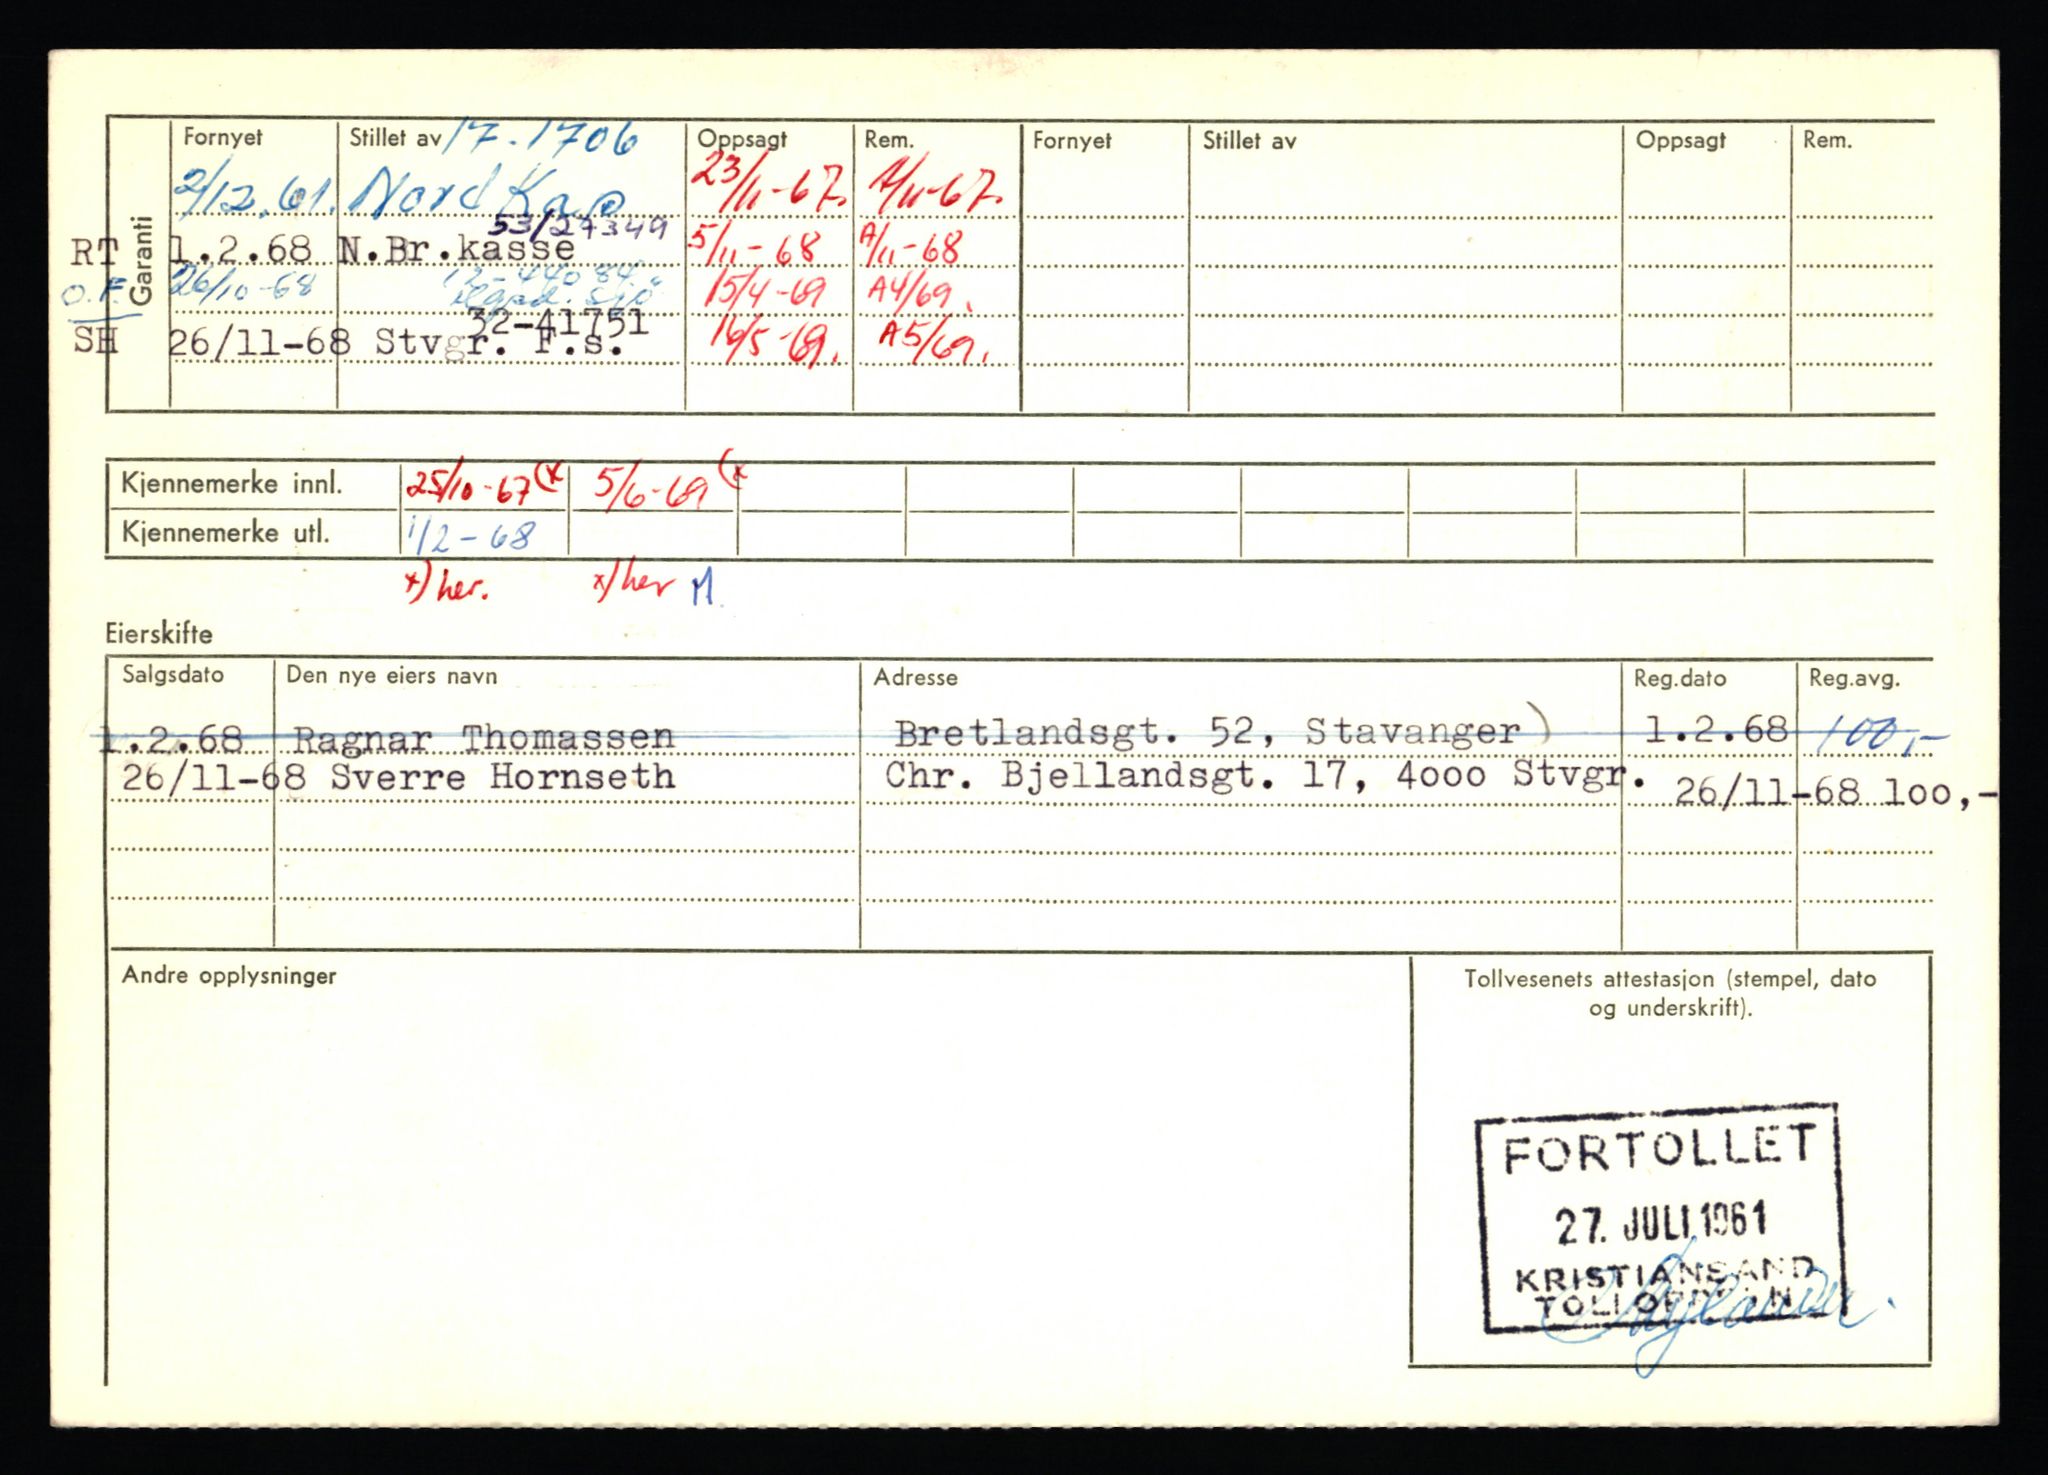 Garanti
Fornyet Stillet av 17-1706 Oppsagt Rem. Fornyet Stillet av Oppsagt Rem.
2/12.61. Nord Kap 23/11-67. A/11-67.
53/27349
RT 1.2.68 N.Br.kasse 5/11-68 A/11-68
O.F. 26/10-68 Sjø 15/4-69 A4/69.
32-41751
SH 26/11-68 Stvgr. F.s. 16/5-69. A5/69.
Kjennemerke innl. 25/10-67 (x 5/6-69 (x
Kjennemerke utl. 1/2-68
x) her. x) her M
Eierskifte
Salgsdato Den nye eiers navn Adresse Reg.dato Reg.avg.
1.2.68 Ragnar Thomassen Bretlandsgt. 52, Stavanger) 1.2.68 100,-
26/11-68 Sverre Hornseth Chr. Bjellandsgt. 17, 4000 Stvgr. 26/11-68 100,-
Andre opplysninger
Tollvesenets attestasjon (stempel, dato
og underskrift).
FORTOLLET
27. JULI 1961
KRISTIANSAND